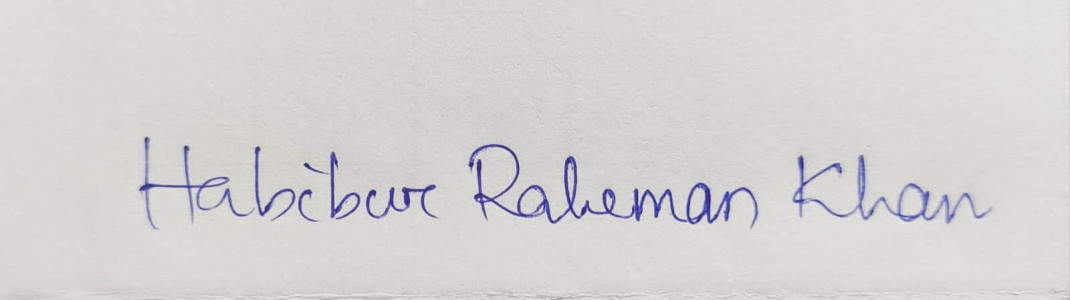 Habibur Raheman Khan